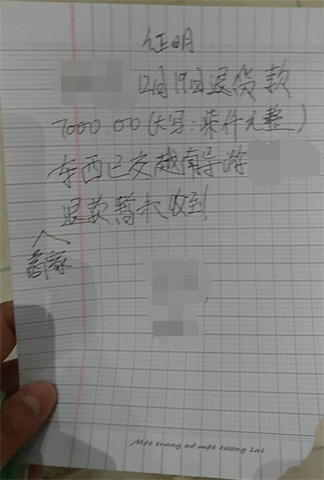 证明
12月19日退货款
7000.00(大写:柒仟元整)
东西已交越南导游
退款暂未收到
商家
Một trang vở một tương lai